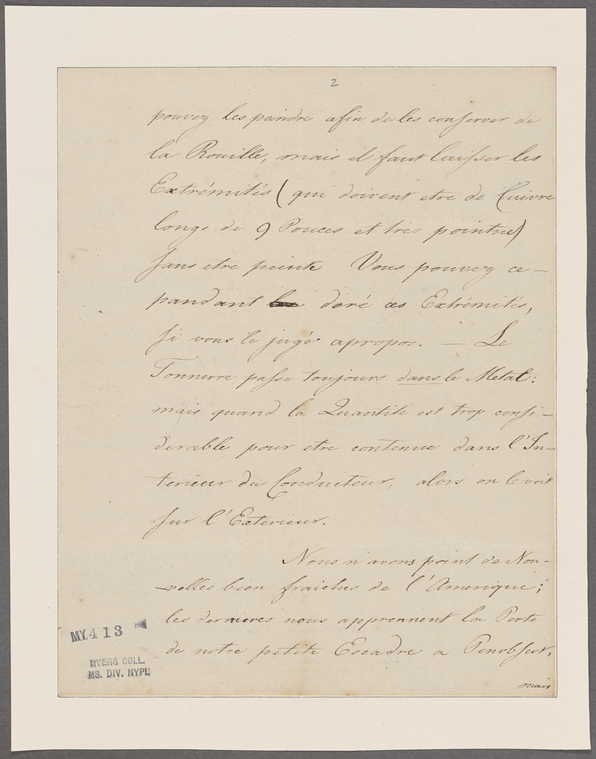 2
pouvez les peindre afin de les conserver de
la Rouille, mais il faut laisser les
Extrémités (qui doivent etre de Cuivre
longs de 9 Pouces et très pointue)
sans etre peinte Vous pouvez ce-
pandant doré ces Extrémités,
si vous le jugé apropos. — Le
Tonnerre passe toujours dans le Metal:
mais quand la Quantité est trop consi-
derable pour etre contenue dans l'In-
terieur du Conducteur, alors on le voit
sur l'Exterieur.
Nous n'avons point de Nou-
velles bien fraiches de l'Amerique;
les dernieres nous apprennent la Perte
de notre petite Escadre a Penobscot,
mais
MY.413
MYERS COLL.
MS. DIV. NYPL